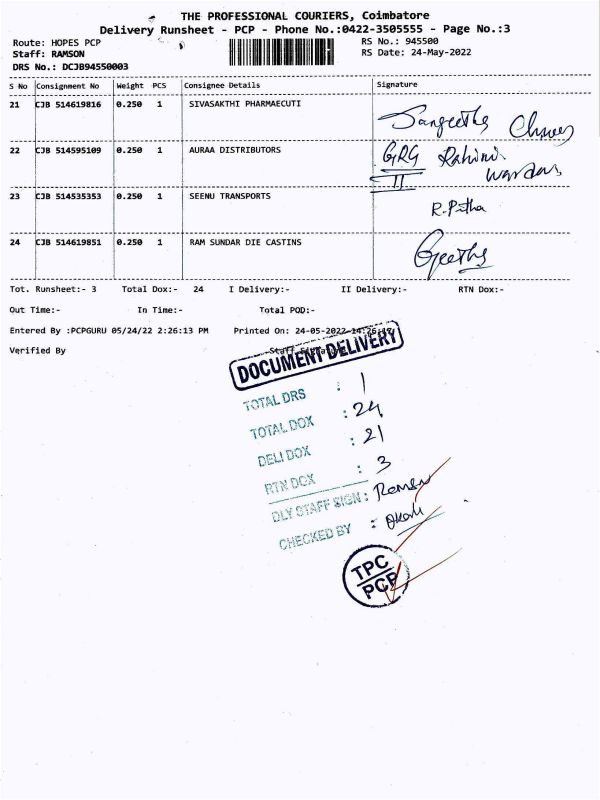 THE PROFESSIONAL COURIERS, Coimbatore
Delivery Runsheet - PCP - Phone No.:0422-3505555 - Page No.:3
Route: HOPES PCP RS No.: 945500
Staff: RAMSON RS Date: 24-May-2022
DRS No.: DCJB94550003
S No Consignment No Weight PCS Consignee Details Signature
21 CJB 514619816 0.250 1 SIVASAKTHI PHARMACEUTI
Sangeetha
22 CJB 514595109 0.250 1 AURAA DISTRIBUTORS GRG Rahini
II
23 CJB 514535353 0.250 1 SEENU TRANSPORTS
R.Pitha
24 CJB 514619851 0.250 1 RAM SUNDAR DIE CASTINS Geetha
Tot. Runsheet:- 3 Total Dox:- 24 I Delivery:- II Delivery:- RTN Dox:-
Out Time:- In Time:- Total POD:-
Entered By :PCPGURU 05/24/22 2:26:13 PM Printed On: 24-05-2022
Verified By Staff
DOCUMENT DELIVERY
TOTAL DRS : 1
TOTAL DOX : 24
DELI DOX : 21
RTN DOX : 3
DLY STAFF SIGN : Ramson
CHECKED BY :
TPC
PCP